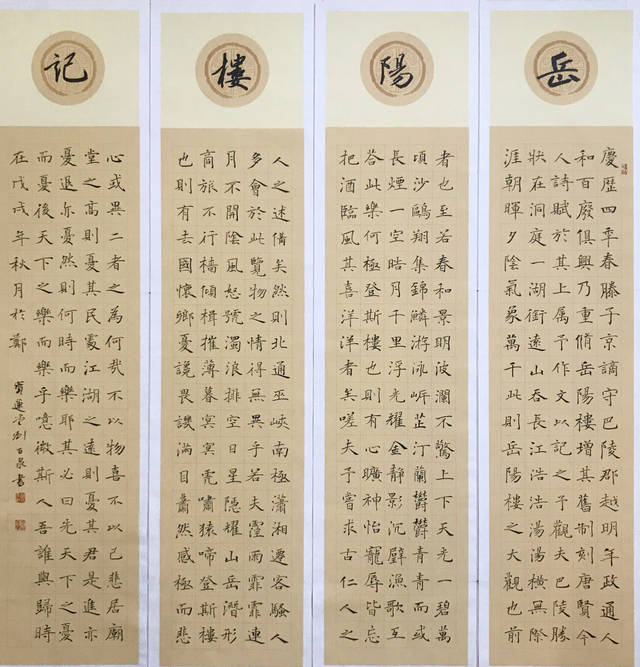 岳
慶歷四年春滕子京謫守巴陵郡越明年政通人
和百廢俱興乃重脩岳陽樓增其舊制刻唐賢今
人詩賦於其上属予作文以記之予觀夫巴陵勝
狀在洞庭一湖銜遠山吞長江浩浩湯湯橫無際
涯朝暉夕陰氣象萬千此則岳陽樓之大觀也前
陽
者也至若春和景明波瀾不驚上下天光一碧萬
頃沙鷗翔集錦鱗游泳岸芷汀蘭鬱鬱青青而或
長煙一空皓月千里浮光耀金靜影沉璧漁歌互
荅此樂何極登斯樓也則有心曠神怡寵辱皆忘
把酒臨風其喜洋洋者矣嗟夫予嘗求古仁人之
樓
人之述備矣然則北通巫峽南極瀟湘遷客騷人
多會於此覽物之情得無異乎若夫霪雨霏霏連
月不開陰風怒號濁浪排空日星隱耀山岳潛形
商旅不行檣傾楫摧薄暮冥冥虎嘯猿啼登斯樓
也則有去國懷鄉憂讒畏譏滿目蕭然感極而悲
記
心或異二者之為何哉不以物喜不以己悲居廟
堂之高則憂其民處江湖之遠則憂其君是進亦
憂退亦憂然則何時而樂耶其必曰先天下之憂
而憂後天下之樂而樂乎噫微斯人吾誰與歸時
在戊戌年秋月於鄭